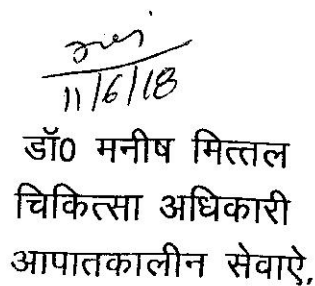 11/6/18
डॉ0 मनीष मित्तल
चिकित्सा अधिकारी
आपातकालीन सेवाऐ,